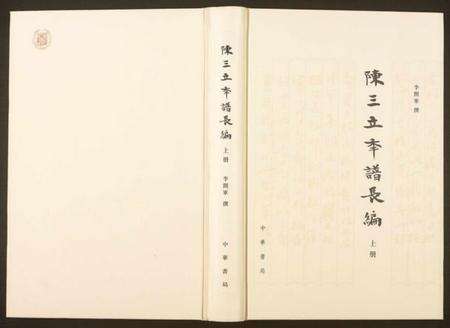 陳三立年譜長編
上册
李開軍 撰
中華書局
陳三立年譜長編
上册
李開軍 撰
中華書局